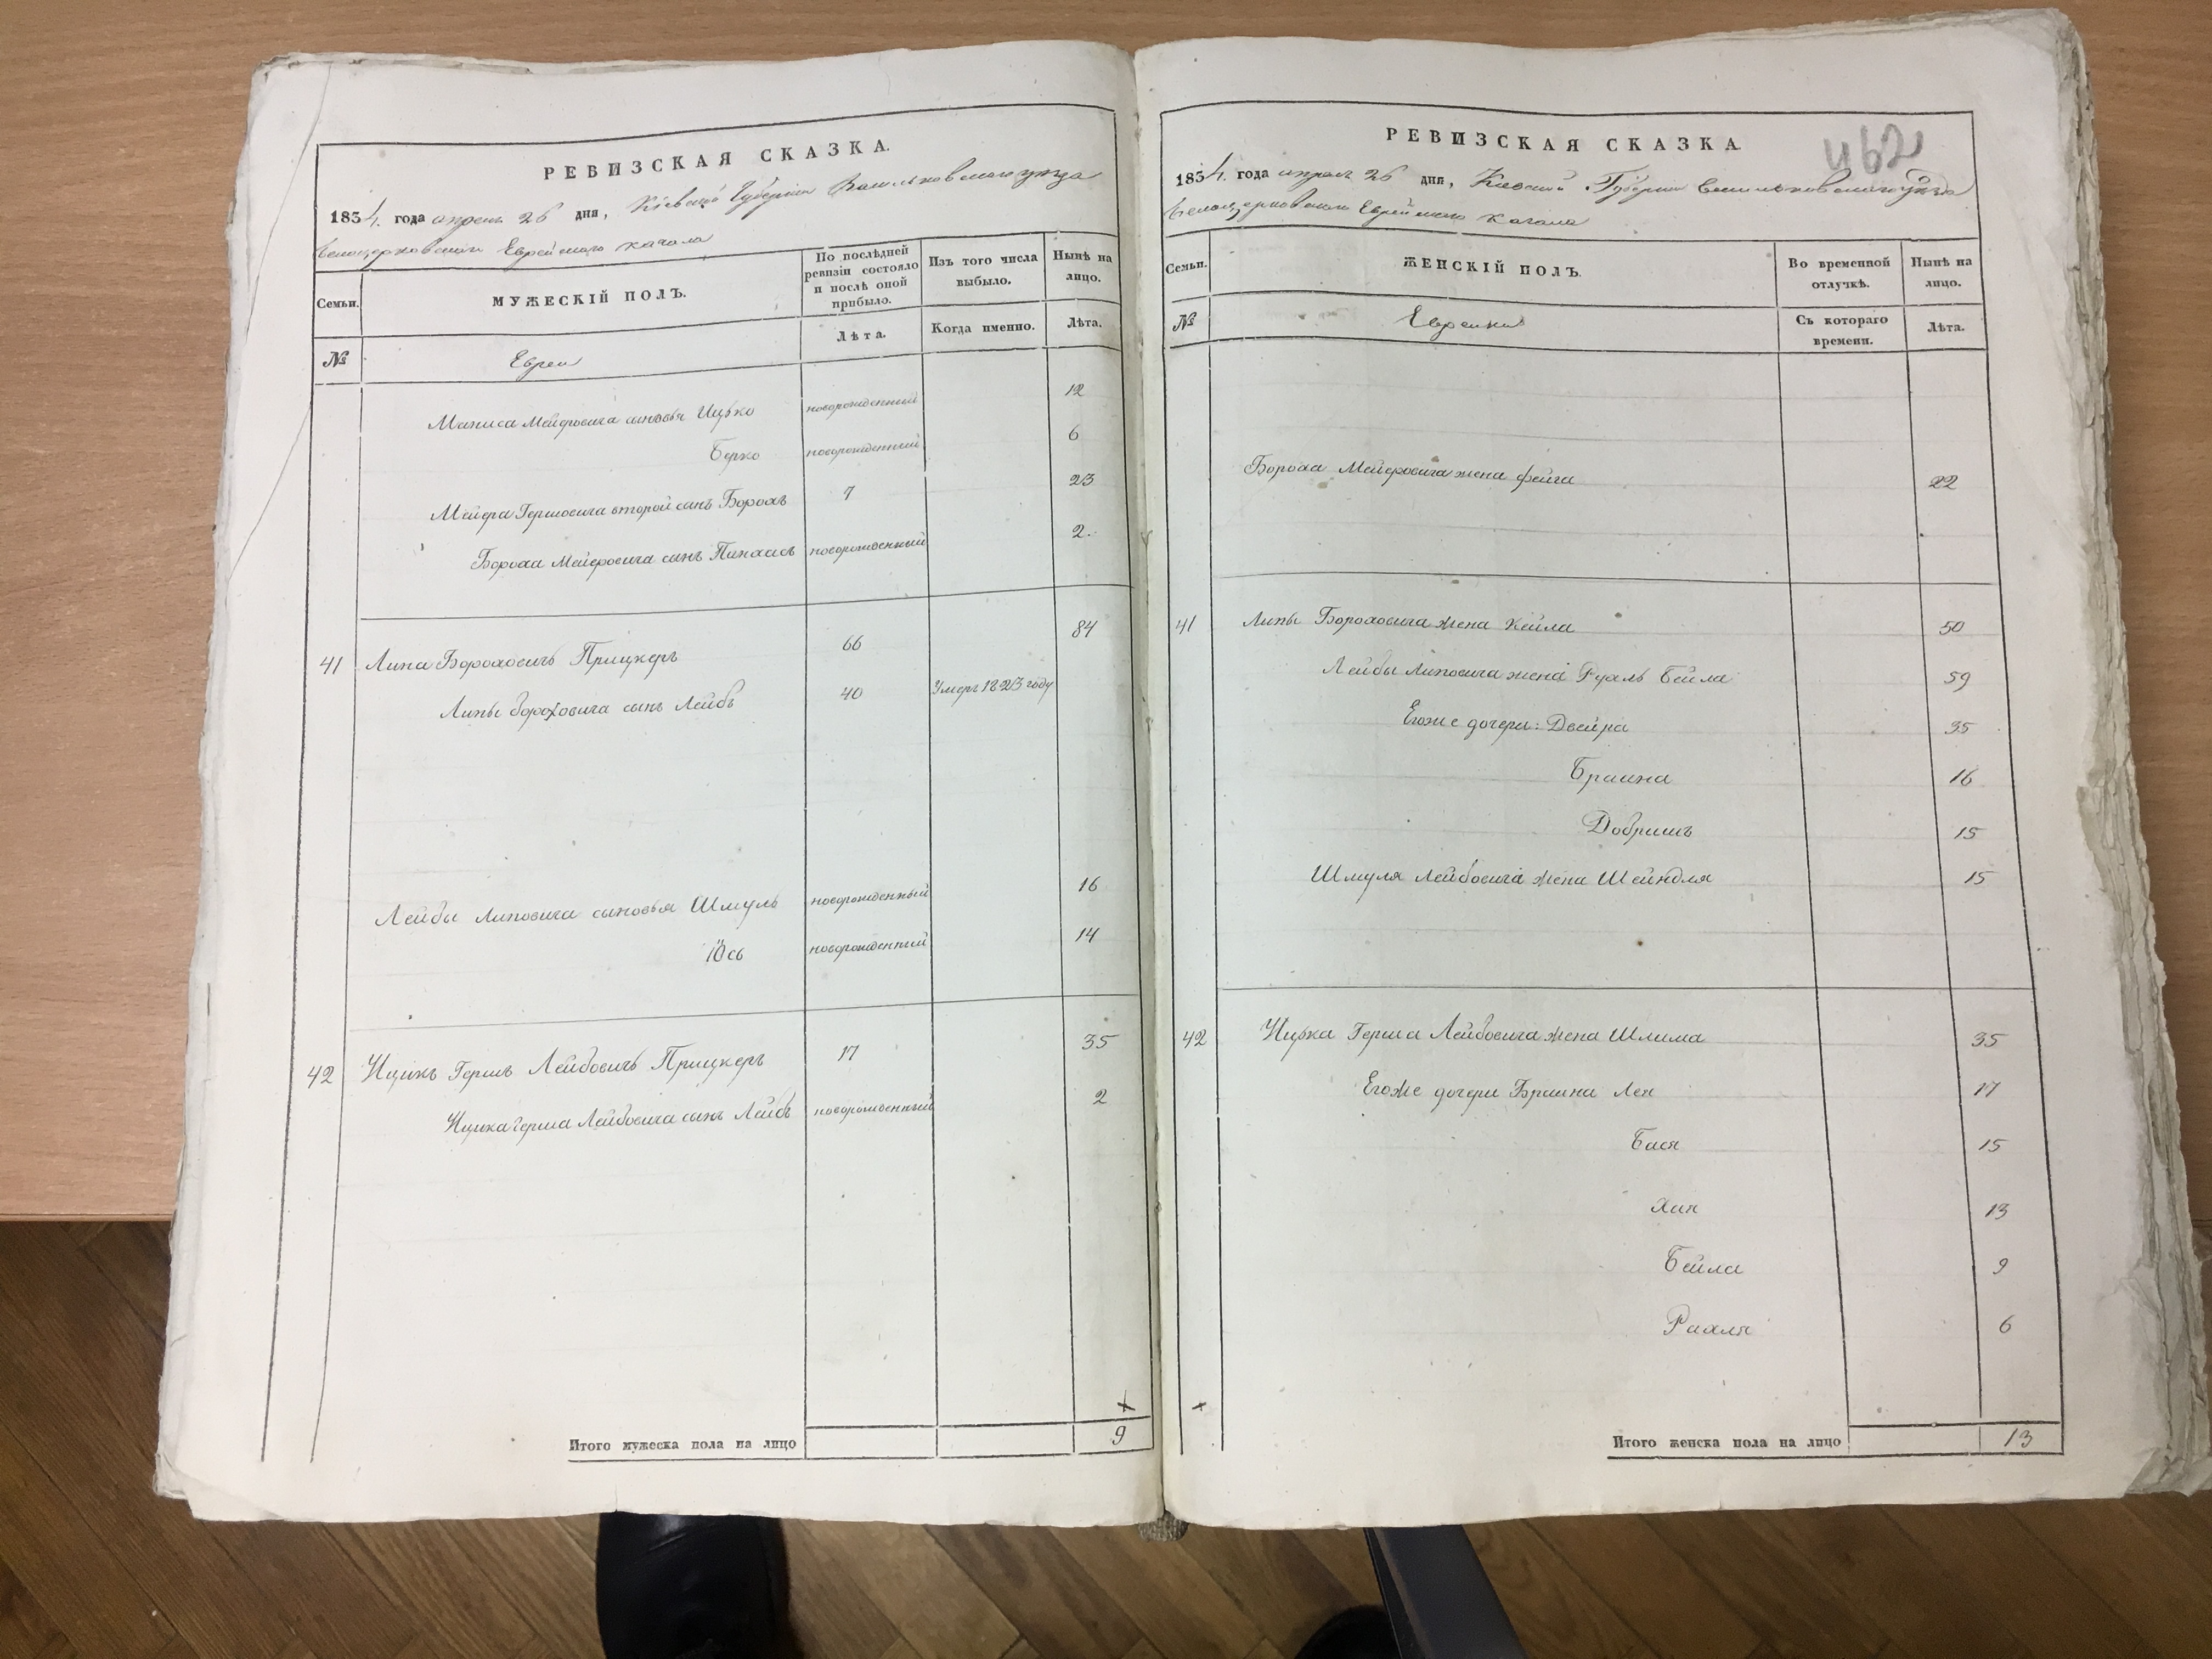 РЕВИЗСКАЯ СКАЗКА.
1834. года апреля 26 дня, Кіевской Губерніи Васильковского уезда
Белоцерковского Еврейского кагала
Семьи.
МУЖЕСКІЙ ПОЛЪ.
По послѣдней ревизіи состояло и послѣ оной прибыло.
Изъ того числа выбыло.
Нынѣ на лицо.
№
Евреи
Лѣта.
Когда именно.
Лѣта.
Мейеровича сыновья Ицько новорожденный 12
Берко новорожденный 6
Мейера Гершовича второй сынъ Борохъ 7 23
Бороха Мейеровича сынъ Пинхасъ новорожденный 2.
41 Липа Бороховичъ Прицкеръ 66 84
Липы Бороховича сынъ Лейбъ 40 Умеръ 1823 году
Лейбы Липовича сыновья Шмуль новорожденный 16
Юсь новорожденный 14
42 Ицикъ Гершъ Лейбовичъ Прицкеръ 17 35
Ицика Герша Лейбовича сынъ Лейбъ новорожденный 2
Итого мужеска пола на лицо 9
462
РЕВИЗСКАЯ СКАЗКА
1834. года апреля 26 дня, Киевской Губернии Васильковского уезда
Белоцерковского Еврейского кагала
Семьи.
ЖЕНСКІЙ ПОЛЪ.
Во временной отлучкѣ.
Нынѣ на лицо.
№
Еврейки
Съ котораго времени.
Лѣта.
Бороха Мейеровича жена Фейга 22
41 Липы Бороховича жена Кейла 50
Лейбы Липовича жена Бейла 59
Егоже дочери: Двейра 35
Браина 16
Добришъ 15
Шмуля Лейбовича жена Шейндля 15
42 Ицька Герша Лейбовича жена Шлима 35
Егоже дочери Браина Лея 17
Бася 15
Хая 13
Бейла 9
Рахля 6
Итого женска пола на лицо 13